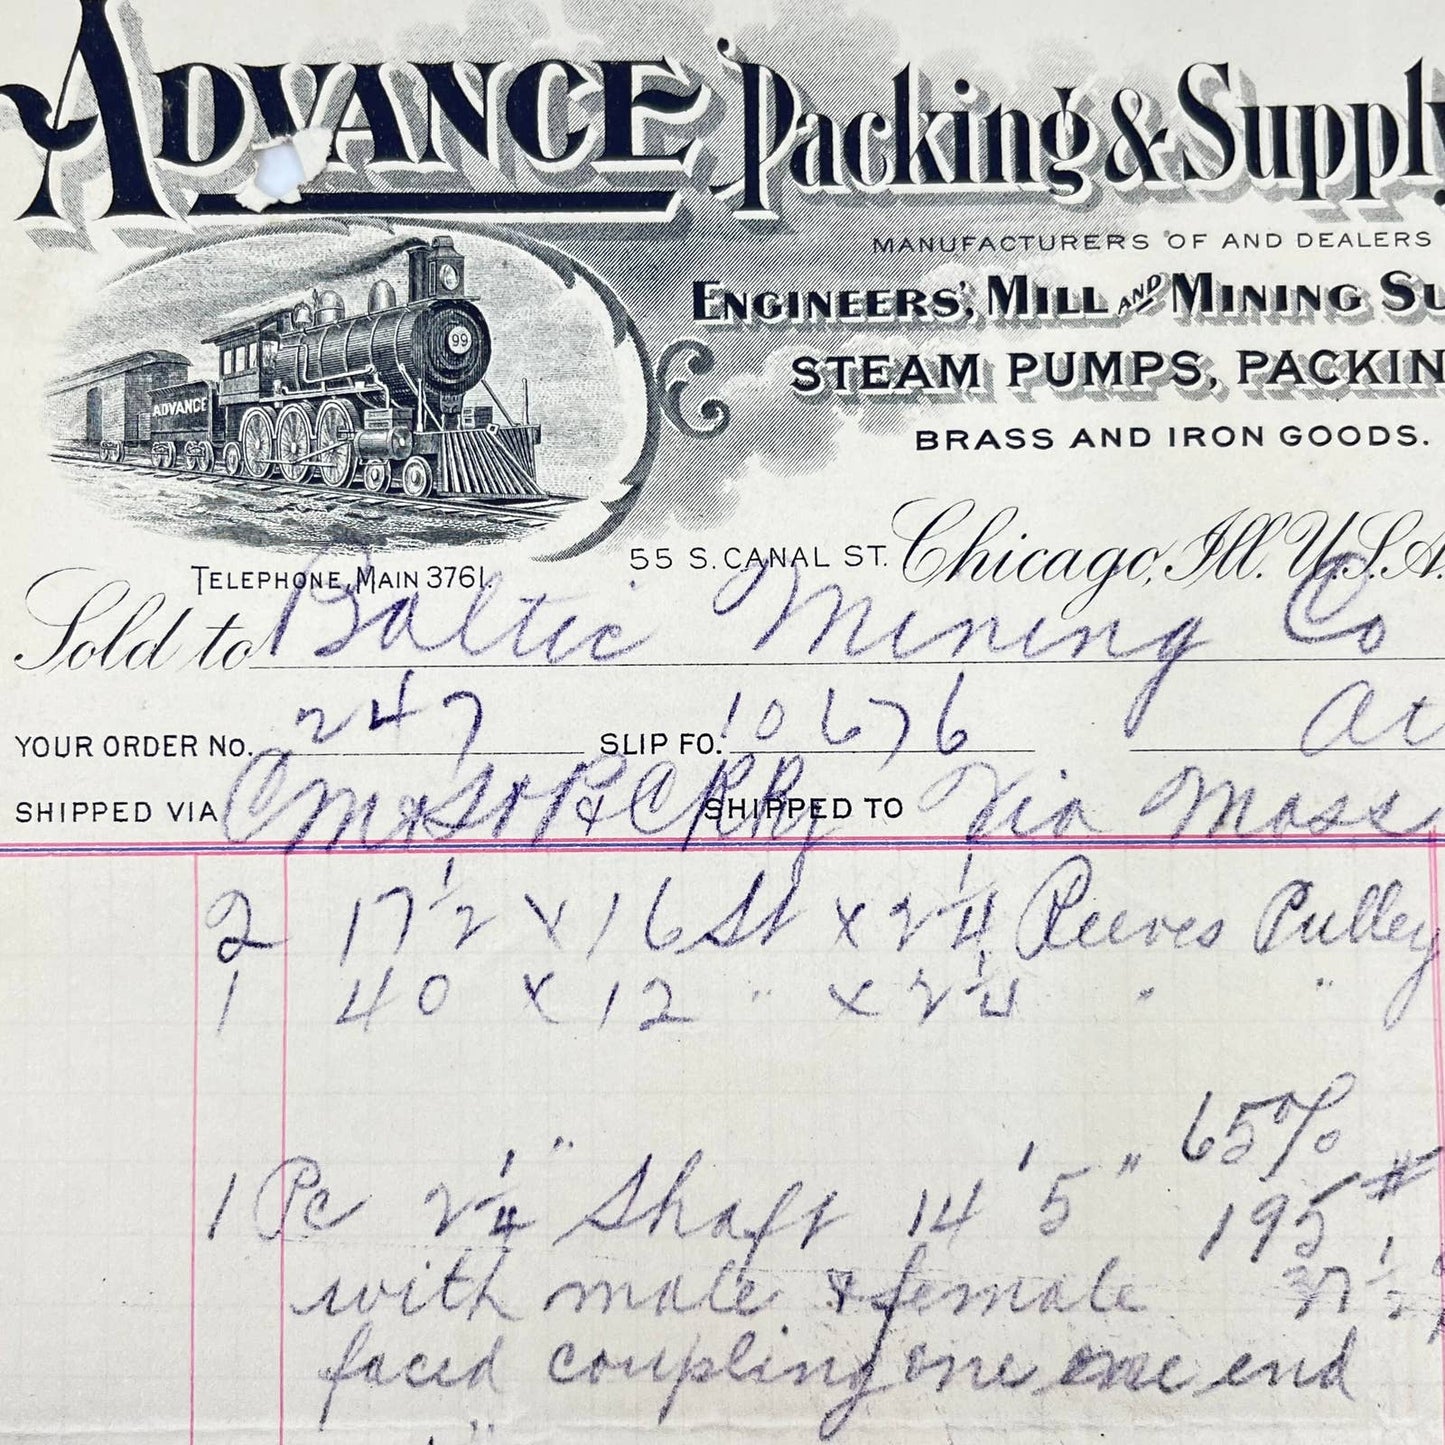 ADVANCE Packing & Supply
MANUFACTURERS OF AND DEALERS
ENGINEERS', MILL AND MINING SU
STEAM PUMPS, PACKIN
BRASS AND IRON GOODS.
99
ADVANCE
TELEPHONE, MAIN 3761.
55 S. CANAL ST. Chicago, Ill. U.S.A.
Sold to Baltic Mining Co
YOUR ORDER No. 247 SLIP FO. 10676 at
SHIPPED VIA CM & St P & C RRy SHIPPED TO Via Mass
2 17 1/2 x 16 St x 2 1/4 Reeves Pulley
1 40 x 12 " x 2 1/4 " "
65%
1 Pc 2 1/4" Shaft 14' 5" 195#
with male & female 37 1/2
faced coupling one end